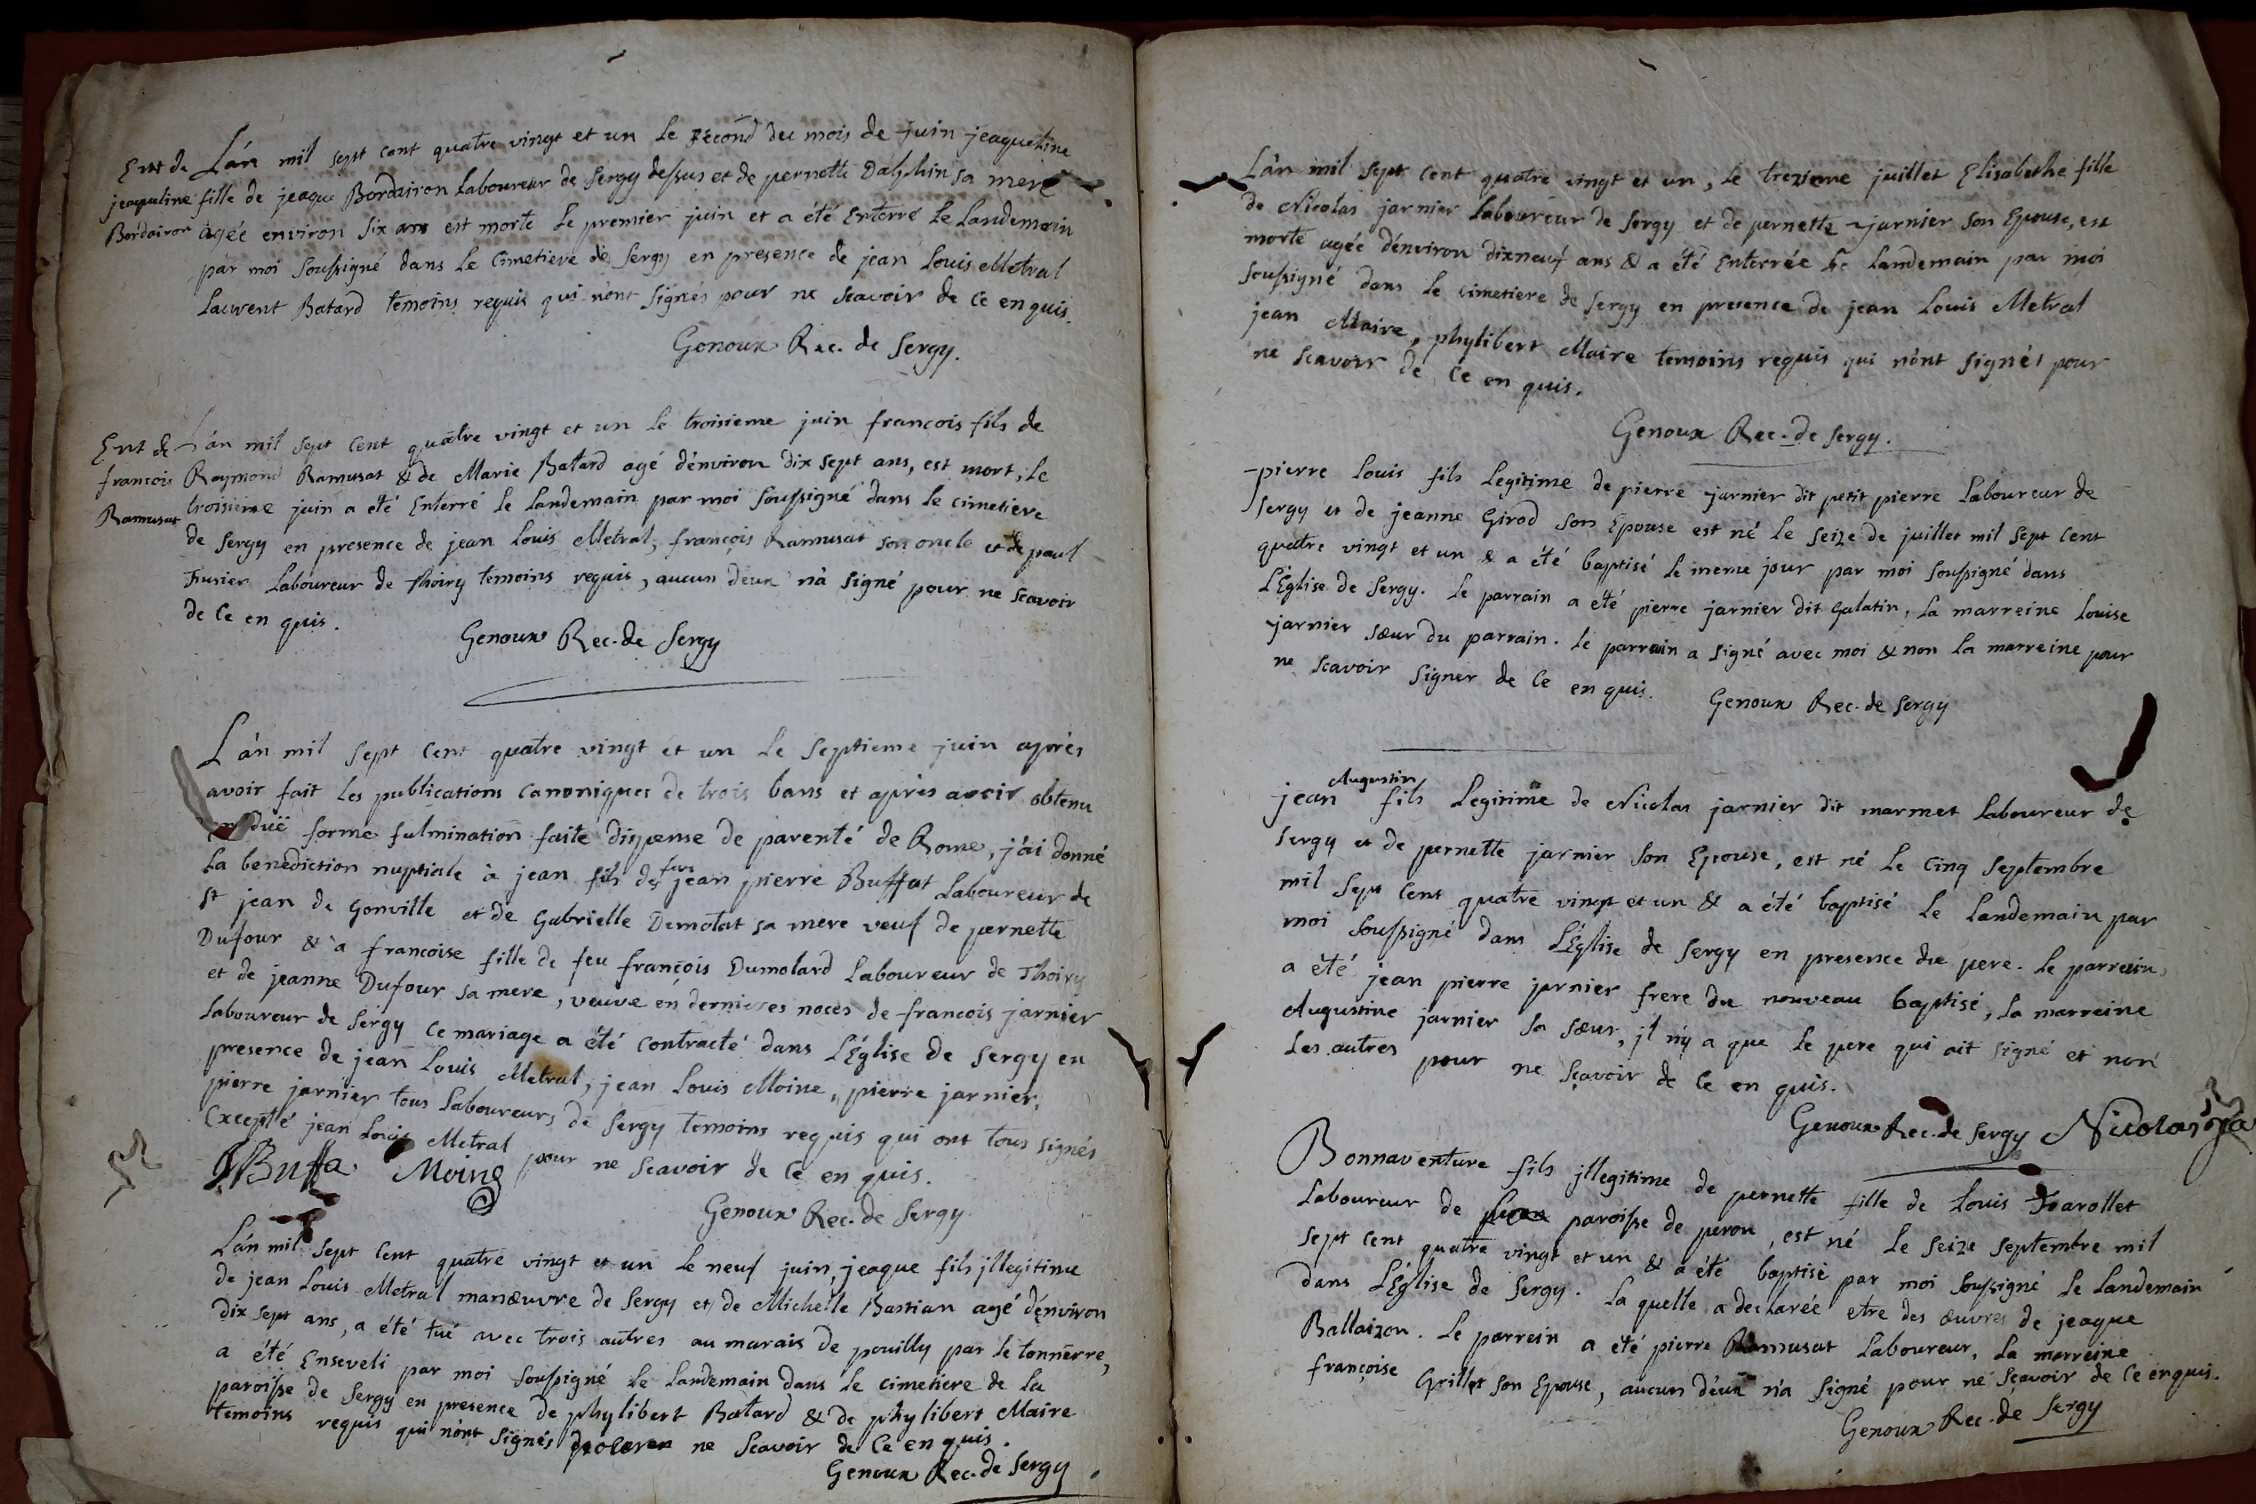 L'án mil sept cent quatre vingt et un le second du mois de juin jeaqueline
Ent de
jeaqueline fille de jeaque Bordairon Laboureur de Sergy dessus et de pernette Dalphin sa mere
Bordairon agée environ six ans est morte le premier juin et a été Enterré le Landemain
par moi soussigné dans le Cimetiere de Sergy en presence de jean Louis Metral
Laurent Batard temoins requis qui n'ont signés pour ne scavoir de ce enquis.
Genoux Rec. de Sergy.
Ent de
L'án mil sept cent quatre vingt et un le troisieme juin francois fils de
francois Raymond Ramusat & de Marie Batard agé d'énviron dix sept ans, est mort, le
Ramusat troisieme juin a été Enterré le Landemain par moi soussigné dans le cimetiere
de Sergy en presence de jean Louis Metral, françois Ramusat son oncle et de paul
Laboureur de thoiry temoins requis, aucun d'eux n'à signé pour ne scavoir
de ce en quis.
Genoux Rec. de Sergy
L'án mil sept cent quatre vingt et un le septieme juin aprés
avoir fait les publications canoniques de trois bans et aprés avoir obtenu
en düe forme fulmination faite dispense de parenté de Rome, j'ái donné
la benediction nuptiale à jean fils de feu jean pierre Buffat Laboureur de
St jean de Gonville et de Gabrielle Demolat sa mere veuf de pernette
Dufour & à francoise fille de feu françois Dumolard Laboureur de Thoiry
et de jeanne Dufour sa mere, veuve én dernieres noces de francois jarnier
Laboureur de Sergy ce mariage a été contracté dans L'Église de Sergy en
presence de jean Louis Metral, jean Louis Moine, pierre jarnier,
pierre jarnier tous Laboureurs de Sergy temoins requis qui ont tous signés
Excepté jean Louis Metral pour ne scavoir de ce en quis.
JBuffa Moine
Genoux Rec. de Sergy
L'án mil sept cent quatre vingt et un le neuf juin, jeaque fils jllegitime
de jean Louis Metral manœuvre de Sergy et de Michelle Bastian agé d'énviron
dix sept ans, a été tué avec trois autres au marais de pouilly par le tonnerre,
a été Enseveli par moi soussigné le Landemain dans le cimetiere de la
paroisse de Sergy en presence de phylibert Batard & de phylibert Maire
temoins requis qui n'ónt signés ne scavoir de ce en quis.
Genoux Rec. de Sergy
L'án mil sept cent quatre vingt et un, le trezieme juillet Elisabethe fille
de Nicolas jarnier Laboureur de Sergy et de pernette jarnier son Epouse, est
morte agée d'énviron dixneuf ans & a été Enterrée le Landemain par moi
soussigné dans le cimetiere de Sergy en presence de jean Louis Metral
jean Maire, phylibert Maire temoins requis qui n'ónt signés pour
ne scavoir de ce en quis.
Genoux Rec. de Sergy.
pierre Louis fils Legitime de pierre jarnier dit petit pierre Laboureur de
Sergy et de jeanne Girod son Epouse est né le seize de juillet mil sept cent
quatre vingt et un & a été baptisé le meme jour par moi soussigné dans
L'Église de Sergy. le parrain a été pierre jarnier dit Galatin, la marreine Louise
jarnier sœur du parrain. le parrain a signé avec moi & non la marreine pour
ne scavoir signer de ce en quis.
Genoux Rec. de Sergy
Augustin
jean fils Legitime de Nicolas jarnier dit marmet Laboureur de
Sergy et de pernette jarnier son Epouse, est né le cinq septembre
mil sept cent quatre vingt et un & a été baptisé le Landemain par
moi soussigné dans L'Église de Sergy en presence du pere. le parrein
a été jean pierre jarnier frere du nouveau baptisé, la marreine
Augustine jarnier sa sœur, jl n'y a que le pere qui ait signé et non
les autres pour ne sçavoir de ce en quis.
Genoux Rec. de Sergy Nicolas
Bonnaventure fils jllegitime de pernette fille de Louis
Laboureur de paroisse de peron, est né le seize septembre mil
sept cent quatre vingt et un & a été baptisé par moi soussigné le Landemain
dans L'Église de Sergy. la quelle a declarée etre des œuvres de jeaque
Ballaizon. le parrein a été pierre Ramusat Laboureur, la marreine
françoise Grillet son Epouse, aucun d'éux n'a signé pour ne sçavoir de ce enquis.
Genoux Rec. de Sergy